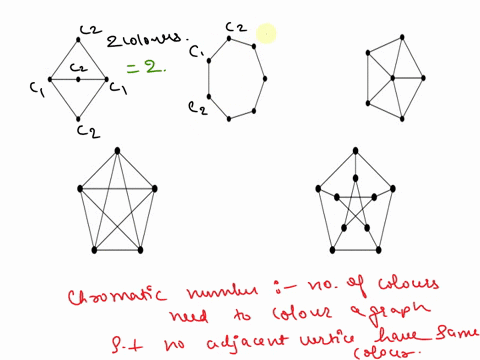 C2
2 colours.
= 2.
C2
C1
C1
C2
C2
C1
C2
Chromatic number :- no. of colours
need to colour a graph
S.t no adjacent vertice have same
colour.